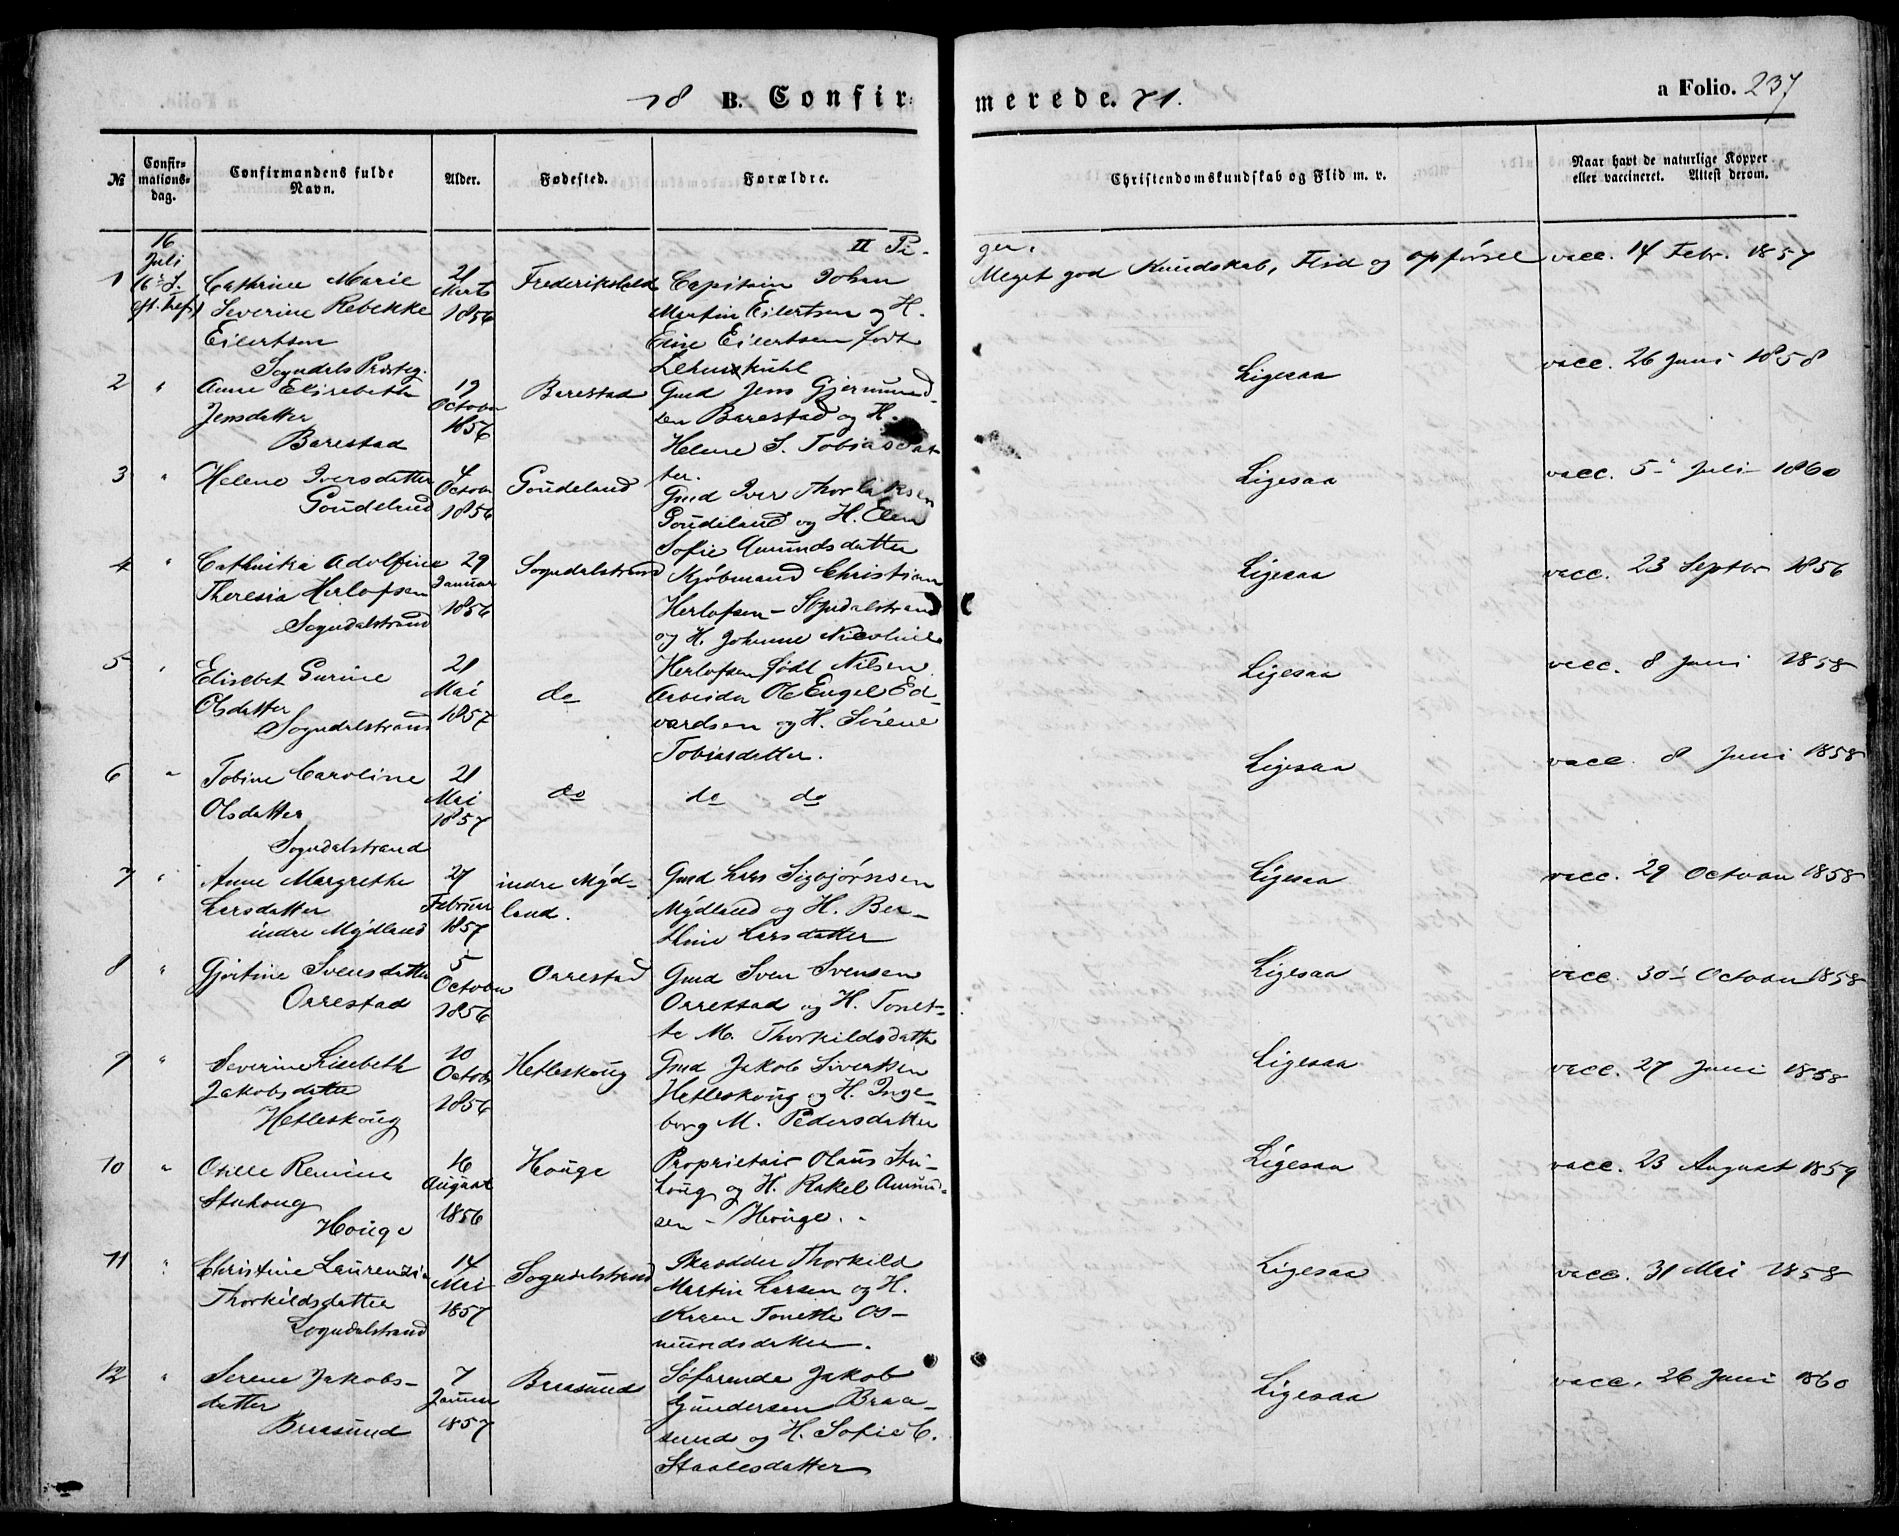 18 B. Confir= merede. 71. a Folio. 237
№
Confir=
mations=
dag.
Confirmandens fulde
Navn.
Alder.
Fødested.
Forældre.
Christendomskundskab og Flid m. v.
Naar havt de naturlige Kopper
eller vaccineret. Attest derom.
II Pi-
ger.
16
Juli
1
Cathrine Marie
Severine Rebekke
Eilertsen
21
Marts
1856
Frederikshald
Capitain Johan
Martin Eilertsen og H.
Elise Eilertsen født
Meget god Kundskab, Flid og opførsel
vacc. 14 Febr. 1857
2 "
Sogndals Præsteg.
Anne Elisebeth
Jensdatter
Barestad
19
October
1856
Barestad
Gmd Jens Gjermund-
sen Barestad og H.
Helene S. Tobiasdat-
ter.
Ligesaa
vacc. 26 Juni 1858
3 "
Helene Iversdatter
Goudeland
4
Octobr
1856
Goudeland
Gmd Iver Thorlaksen
Goudeland og H. Elen
Sofie Amundsdatter
Ligesaa
vacc. 5 Juli 1860
4 "
Cathinka Adolfine
Theresia Herlofsen
Sogndalstrand
29
Januar
1856
Sogndalstrand
Kjøbmand Christian
Herlofsen - Sogndalstrand
og H. Johanne Nicoline
Herlofsen født Nilsen
Ligesaa
vacc. 23 Septbr 1856
5 "
Elisebet Gurine
Olsdatter
Sogndalstrand
21
Mai
1857
do
Arbeider Ole Engel Ed-
vardsen og H. Sirene
Tobiasdatter.
Ligesaa
vacc. 8 Juni 1858
6 "
Tobine Caroline
Olsdatter
Sogndalstrand
21
Mai
1857
do
do do
Ligesaa
vacc. 8 Juni 1858
7 "
Anne Margrethe
Larsdatter
indre Mydland
27
Februar
1857
indre Myd-
land.
Gmd Lars Sigbjørnsen
Mydland og H. Ber-
thine Larsdatter
Ligesaa
vacc. 29 October 1858
8 "
Gjertine Svensdatter
Orrestad
5
October
1856
Orrestad
Gmd Sven Svensen
Orrestad og H. Tonet-
te M. Thorkildsdatter
Ligesaa
vacc. 30 October 1858
9 "
Severine Lisebeth
Jakobsdatter
Hetleskoug
10
Octobr
1856
Hetleskoug
Gmd Jakob Sivertsen
Hetleskoug og H. Inge-
borg M. Pedersdatter
Ligesaa
vacc. 27 Juni 1858
10 "
Osille Remine
Stuhoug
Houge
16
August
1856
Houge
Proprietair Olaus Stu-
houg og H. Rakel Amund-
sen - Houge.
Ligesaa
vacc. 23 August 1859
11 "
Christine Laurenzia
Thorkildsdatter
Sogndalstrand
14
Mai
1857
Sogndalstrand
Skrædder Thorkild
Martin Larsen og H.
Karen Tonette Os-
mundsdatter.
Ligesaa
vacc. 31 Mai 1858
12 "
Serene Jakobs-
datter
Braasund
7
Januar
1857
Braasund
Søfarende Jakob
Gundersen Braa-
sund og H. Sofie C.
Staalesdatter
Ligesaa
vacc. 26 Juni 1860